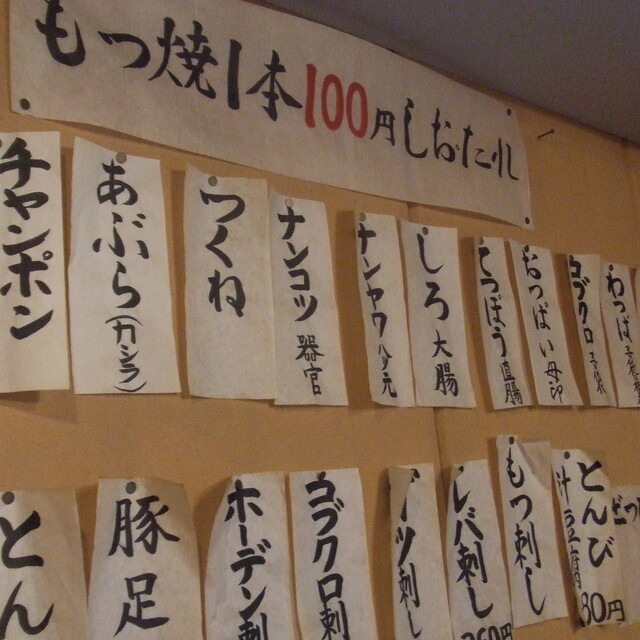 もつ焼1本100円しお・たれ
チャンポン
あぶら(カシラ)
つくね
ナンコツ 器官
しろ 大腸
てっぽう 直腸
おっぱい
コブクロ 子袋
わっぱ
とん
豚足
ホーデン刺
コブクロ刺
ツ刺し
レバ刺し
もつ刺し
とんび
80円